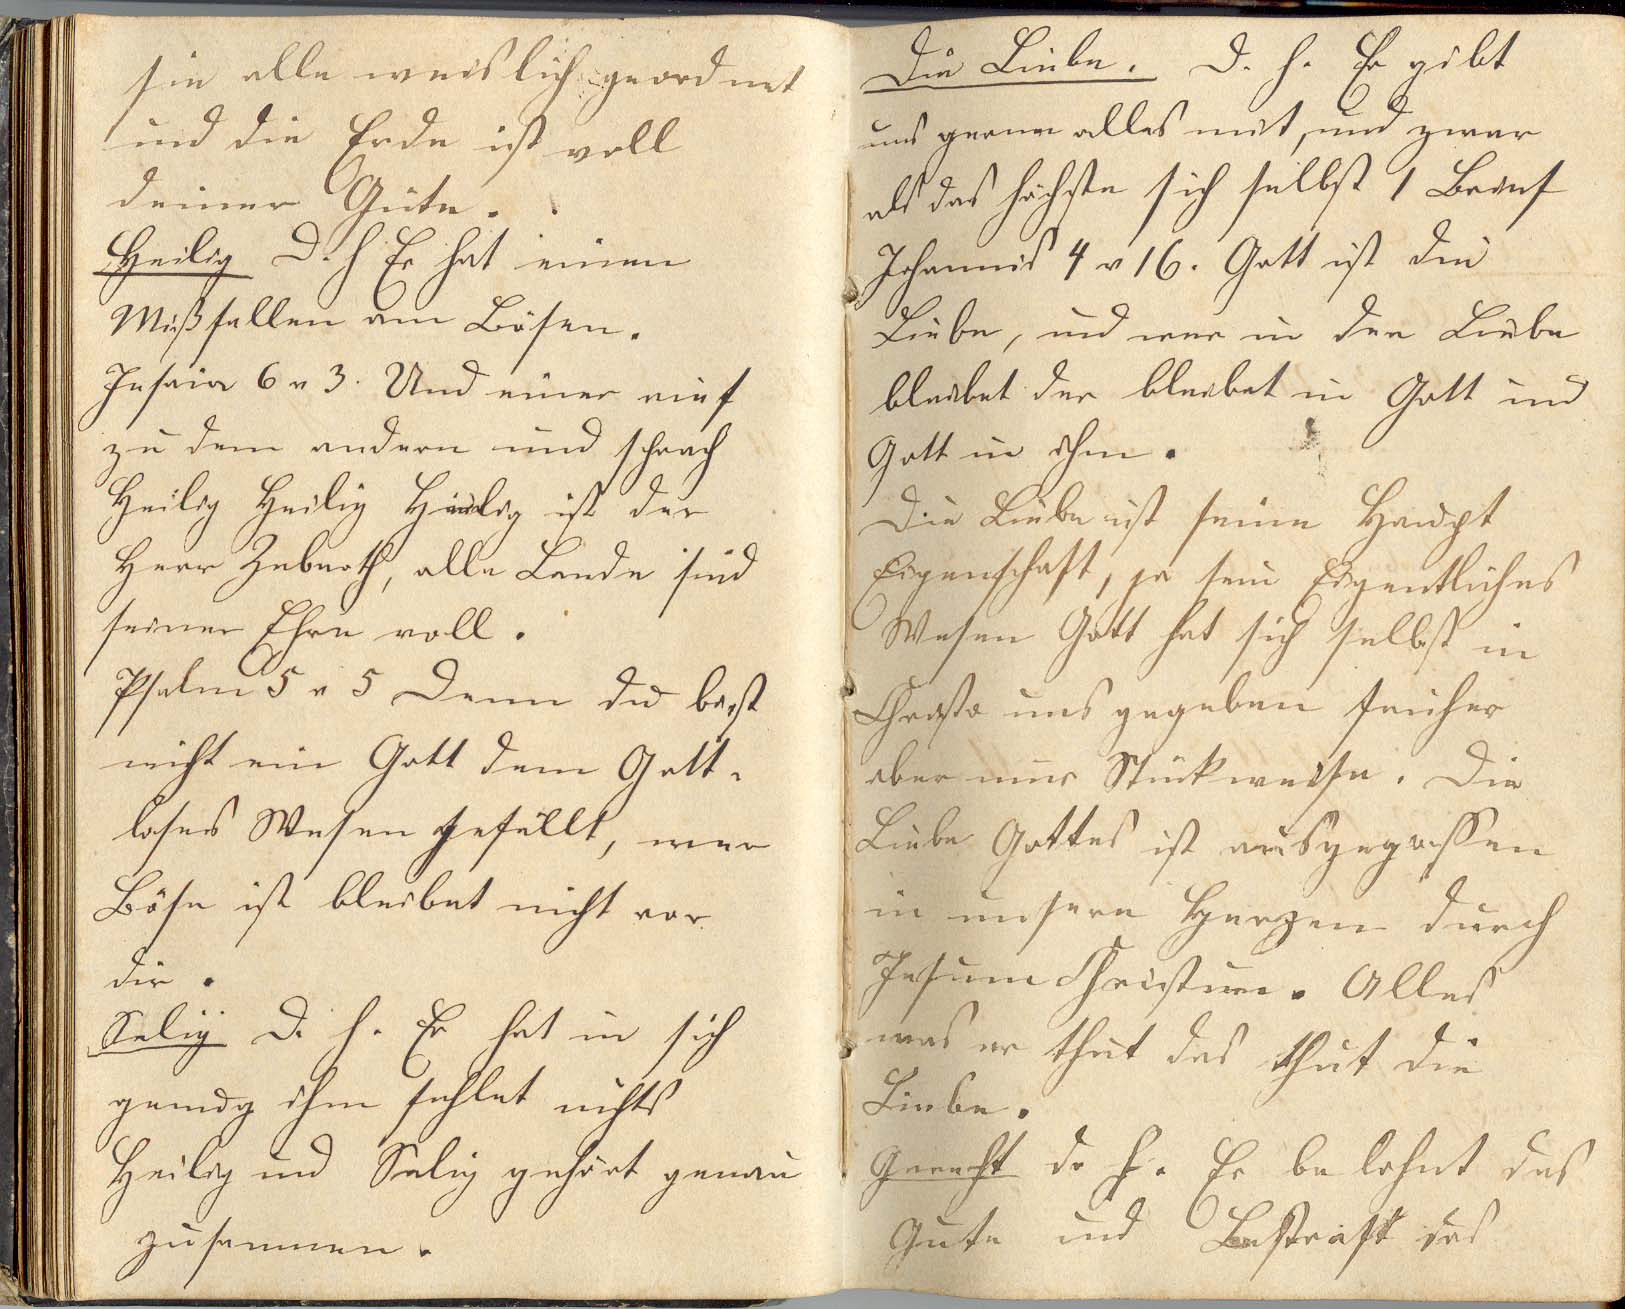 sie alle weislich geordnet
und die Erde ist voll
deiner Güte.
Heilig D. h Er hat einen
Mißfallen am Bösen.
Jesaia 6 v 3. Und einer rief
zu dem andern und sprach
Heilig Heilig Heilig ist der
Herr Zebaoth, alle Lande sind
seiner Ehre voll.
Psalm 5 v 5 Denn du bist
nicht ein Gott dem Gott-
loses Wesen gefällt, wer
Böse ist bleibet nicht vor
dir.
Selig D. h. Er hat in sich
genug ihm fehlet nichts
Heilig und Selig gehört genau
zusammen.
Die Liebe. D. h. Er gibt
uns gerne alles mit, und zwar
als das höchste sich selbst 1 Brief
Johannis 4 v 16. Gott ist die
Liebe, und wer in der Liebe
bleibet der bleibet in Gott und
Gott in ihm.
Die Liebe ist seine Haupt
Eigenschaft, ja sein Eigentliches
Wesen Gott hat sich selbst in
Christo uns gegeben früher
aber nur Stückweise. Die
Liebe Gottes ist ausgegossen
in unsere Herzen durch
Jesum Christum. Alles
was er thut das thut die
Liebe.
Gerecht d. h. Er be lohnt das
Gute und Bestraft das